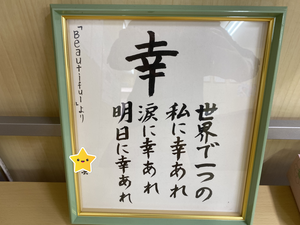 幸
世界で一つの
私に幸あれ
涙に幸あれ
明日に幸あれ
「Beautiful」より